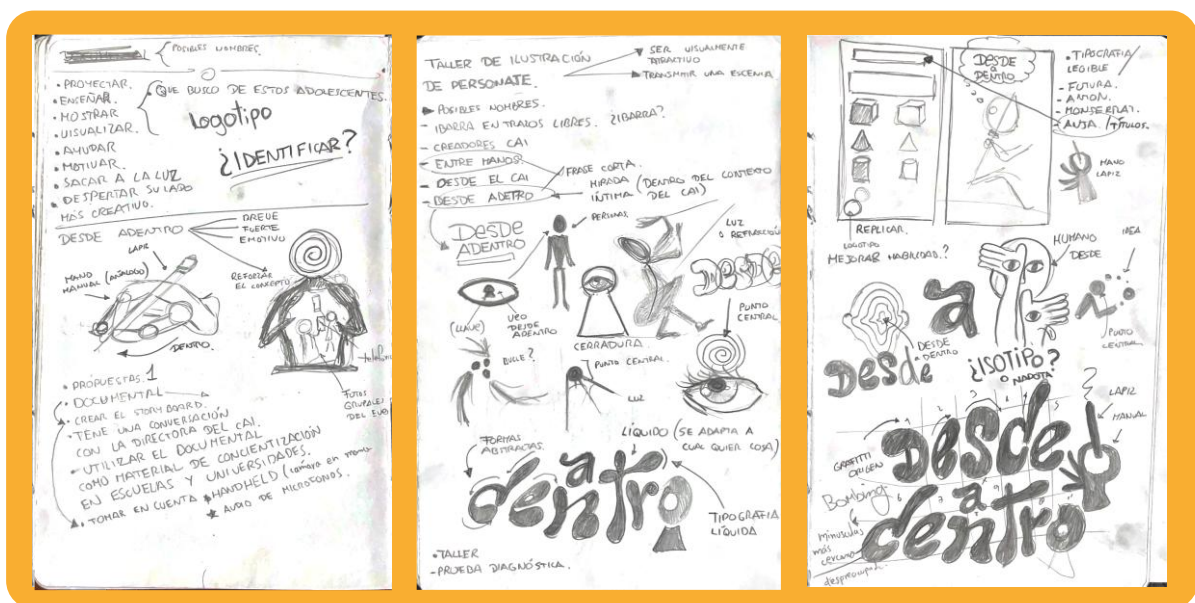 POSIBLES NOMBRES.
• PROYECTAR.
• ENSEÑAR.
• MOSTRAR
• VISUALIZAR.
• AYUDAR
• MOTIVAR.
• SACAR A LA LUZ
• DESPERTAR SU LADO
MÁS CREATIVO.
QUE BUSCO DE ESTOS ADOLESCENTES.
Logotipo
¿IDENTIFICAR?
DESDE ADENTRO
BREVE
FUERTE
EMOTIVO
LAPIZ
MANO (ANÁLOGO)
MANUAL
DENTRO
REFORZAR
EL CONCEPTO
FOTOS
GRUPALES
DEL
• PROPUESTAS. 1
• DOCUMENTAL
• CREAR EL STORYBOARD.
• TENE UNA CONVERSACIÓN
CON LA DIRECTORA DEL CAI.
- UTILIZAR EL DOCUMENTAL
COMO MATERIAL DE CONCIENTIZACIÓN
EN ESCUELAS Y UNIVERSIDADES.
• TOMAR EN CUENTA HANDHELD (cámara en mano
AUDIO DE MICROFONOS.
TALLER DE ILUSTRACIÓN
DE PERSONATE.
SER VISUALMENTE
ATRACTIVO
TRANSMITIR UNA ESCENIA.
POSIBLES NOMBRES.
- IBARRA EN TRAZOS LIBRES. ¿IBARRA?
- CREADORES CAI
- ENTRE MANOS
- DESDE EL CAI
- DESDE ADETRO
FRASE CORTA.
MIRADA (DENTRO DEL CONTEXTO
ÍNTIMA DEL CAI)
DESDE
ADENTRO
PERSONAS
LUZ
O REFRACCIÓN
DESDE
(LLAVE)
DESDE
ADENTRO
CERRADURA.
PUNTO
CENTRAL
BUCLE?
PUNTO CENTRAL.
LUZ
FORMAS
ABSTRACTAS.
LÍQUIDO (SE ADAPTA A
CUAL QUIER COSA)
a
dentro
TIPOGRAFIA
LÍQUIDA
• TALLER
- PRUEBA DIAGNÓSTICA.
DESDE
a
DENTRO
• TIPOGRAFIA
LEGIBLE
- FUTURA.
- ANTON.
- MONSERRAT.
TÍTULOS.
MANO
LAPIZ
REPLICAR.
LOGOTIPO
MEJORAR HABILIDAD.?
HUMANO
DESDE
IDEA
PUNTO
CENTRAL
DESDE
a DENTRO
Desde
a
¿ISOTIPO?
O NAPOTA
LAPIZ
MANUAL
GRAFITTI
ORIGEN
Bombing
Desde
a
dentro
minúsculas
más
cercano